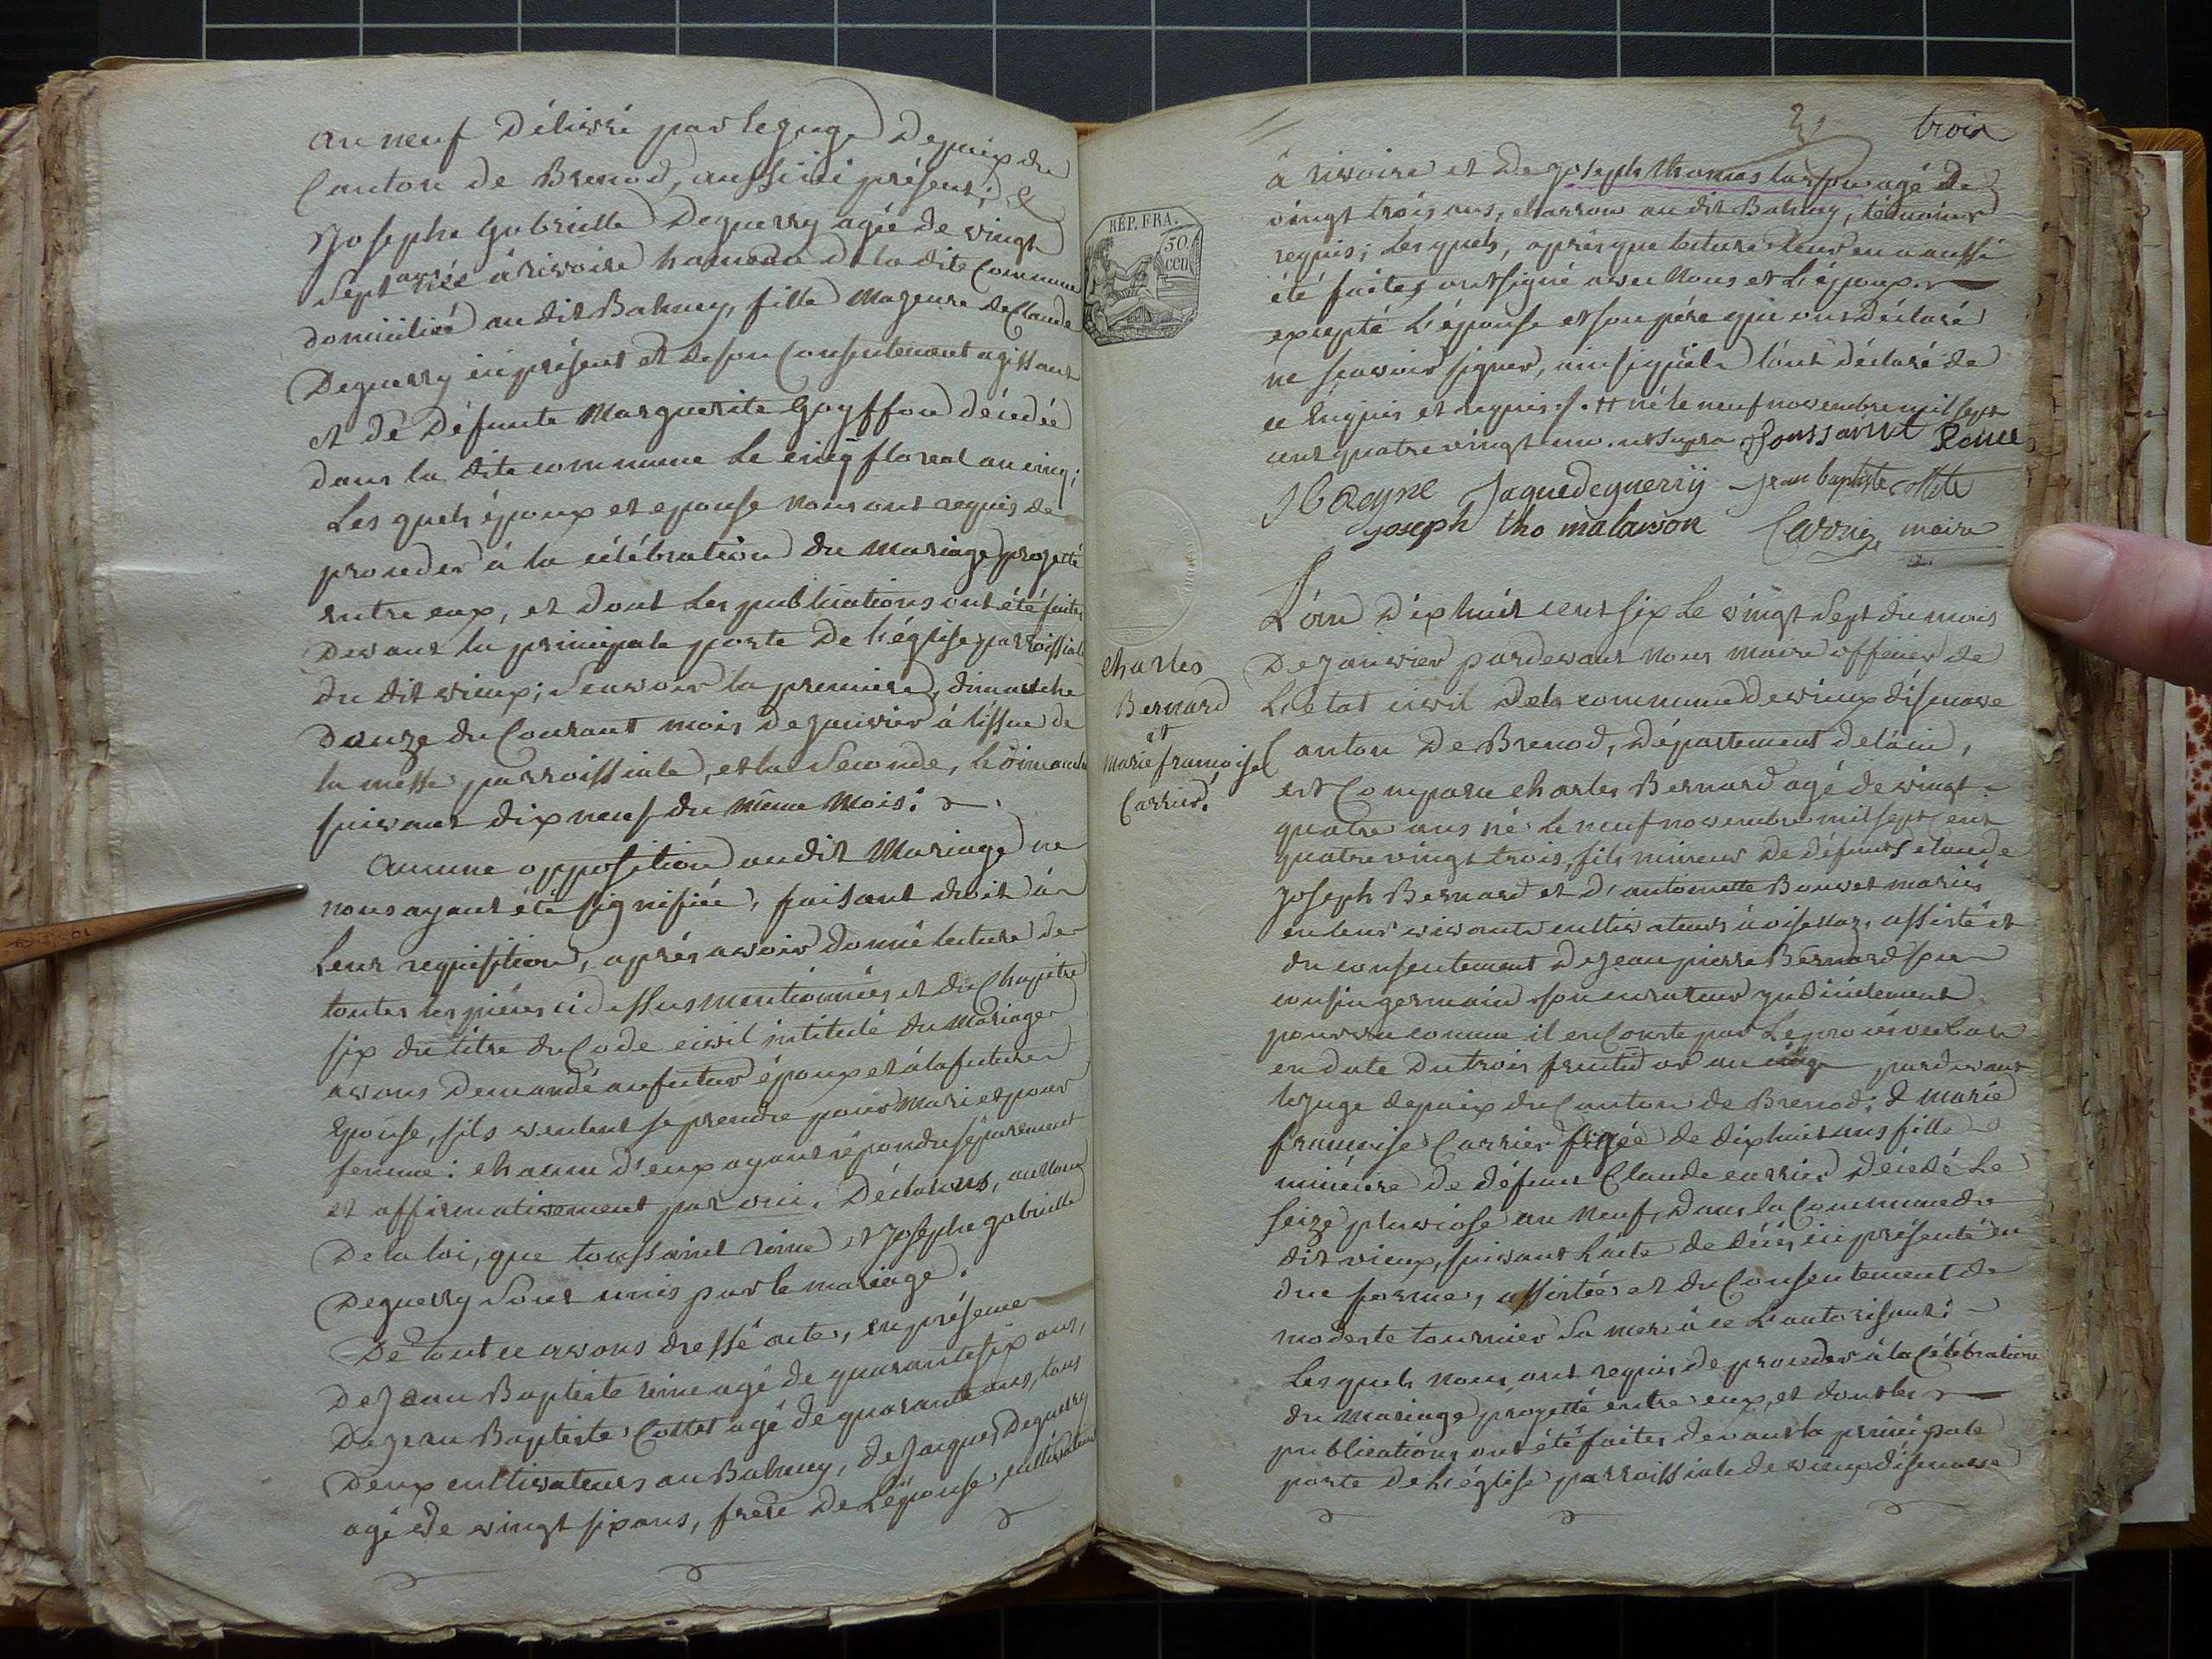 an neuf Délivré par le juge De paix du
Canton de Brenod, aussi ici présent; &
Josephe Gabrielle Deguerry agée de vingt
Sept ans née à rivoire hameau de la dite Commune
domiciliée au dit Balmey, fille Majeure de Claude
Deguerry ici présent et de son Consentement agissant
et de Défunte Marguerite Goyffon décédée
dans la dite commune Le cinq floreal an cinq;
Les quels époux et epouse nous ont requis de
proceder à la célébration du Mariage projetté
entre eux, et dont Les publications ont été faites
Devant la principale porte De L'église parroissiale
du dit vieux; Scavoir la premiere, dimanche
Douze du Courant mois de janvier à l'issue de
la messe parroissiale, et la Seconde, Le dimanche
suivant dix neuf du même Mois.
Aucune opposition au dit Mariage ne
nous ayant été signifiée, faisant droit à
Leur requisition, après avoir donné lecture de
toutes les pièces ci dessus mentionnées et du Chapitre
six du titre du Code civil intitulé du Mariage
avons Demandé au futur époux et à la future
Epouse, s'ils veulent se prendre pour Mari et pour
femme: chacun d'eux ayant répondu séparement
et affirmativement par oui. Déclarons, au Nom
De la loi, que toussaint reine et Josephe gabrielle
Deguerry Sont unis par le mariage.
De tout ce avons dressé acte, en présence
De Jean Baptiste reine agé de quarante six ans,
De jean Baptiste Cottet agé de quarante ans, tous
Deux cultivateurs au Balmey, de Jacques Deguerry
agé de vingt six ans, frere De L'épouse, cultivateur
trois
à rivoire et De joseph thomas larson agé de
vingt trois ans, charron au dit Balmey, témoins
requis; Les quels, après que lecture leur en a aussi
été faite, ont signé avec Nous et L'époux
excepté L'épouse et son père qui ont déclaré
ne scavoir signer, ainsi qu'ils l'ont déclaré de
ce Enquis et requis né le neuf novembre mil sept
cent quatre vingt un. ut supra Toussaint Reine
JB Reyne Jaque deguerry jean baptiste Cottet
joseph tho malarson maire
L'an Dix huit cent six Le vingt Sept du mois
De janvier pardevant Nous maire officier de
L'etat civil De la commune de vieux d'isenave
Canton De Brenod, Département de l'ain,
Charles
Bernard
et
Marie francoise
Carrier.
est Comparu Charles Bernard agé de vingt
quatre ans né Le neuf novembre mil sept cent
quatre vingt trois, fils mineur De défunts Claude
Joseph Bernard et d'antoinette Bouvet mariés
en leur vivant cultivateurs à oisellaz, assisté et
du consentement De Jean pierre Bernard son
cousin germain son curateur judiciclement
pourvu comme il en Conste par Le procès verbal
en date Du trois fructidor an pardevant
le juge de paix du Canton de Brenod; & marie
francoise Carrier agée de dix huit ans fille
mineure De défunt Claude carrier décédé Le
seize pluviose an Neuf, Dans la Commune du
dit vieux, suivant l'acte de décès ici présenté en
due forme, assistée et du Consentement de
modeste tournier sa mere à ce L'autorisant:
Les quels nous ont requis de proceder à la Célébration
du Mariage projetté entre eux, et dont les
publications ont été faites devant la principale
porte De L'église parroissiale de vieux d'isenave
REP. FRA.
50.
cen